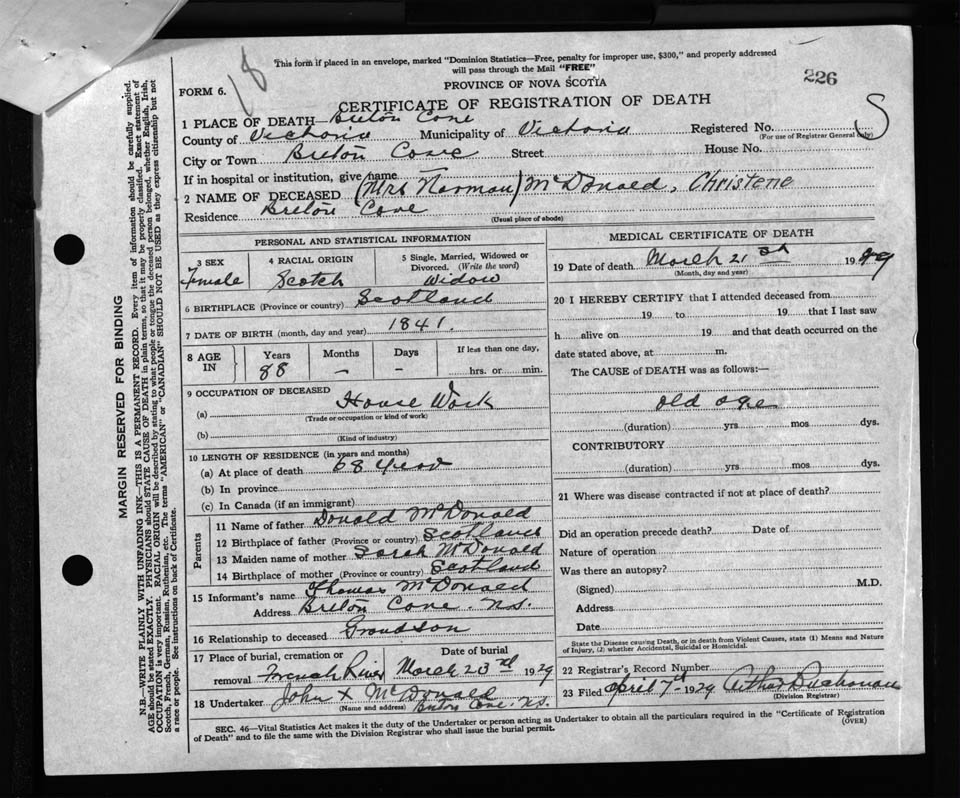 18
This form if placed in an envelope, marked "Dominion Statistics—Free, penalty for improper use, $300," and properly addressed
will pass through the Mail "FREE"
226
FORM 6.
PROVINCE OF NOVA SCOTIA
CERTIFICATE OF REGISTRATION OF DEATH
S
1 PLACE OF DEATH— Breton Cove
County of Victoria Municipality of Victoria Registered No.
(For use of Registrar General only)
City or Town Breton Cove Street House No.
If in hospital or institution, give name
2 NAME OF DECEASED (Mrs Norman) McDonald, Christene
Residence Breton Cove
(Usual place of abode)
PERSONAL AND STATISTICAL INFORMATION
3 SEX Female
4 RACIAL ORIGIN Scotch
5 Single, Married, Widowed or Divorced. (Write the word) Widow
6 BIRTHPLACE (Province or country) Scotland
7 DATE OF BIRTH (month, day and year) 1841.
8 AGE IN Years Months Days If less than one day,
88 – – hrs. or min.
9 OCCUPATION OF DECEASED
(a) House Work
(Trade or occupation or kind of work)
(b)
(Kind of industry)
10 LENGTH OF RESIDENCE (in years and months)
(a) At place of death 68 years
(b) In province
(c) In Canada (if an immigrant)
Parents
11 Name of father Donald McDonald
12 Birthplace of father (Province or country) Scotland
13 Maiden name of mother Sarah McDonald
14 Birthplace of mother (Province or country) Scotland
15 Informant's name Thomas McDonald
Address Breton Cove. N.S.
16 Relationship to deceased Grandson
17 Place of burial, cremation or removal French River
Date of burial March 23rd 1929
18 Undertaker John X McDonald
(Name and address) Breton Cove. N.S.
MEDICAL CERTIFICATE OF DEATH
19 Date of death March 21 1929
(Month, day and year)
20 I HEREBY CERTIFY that I attended deceased from
19 to 19 that I last saw
h alive on 19 and that death occurred on the
date stated above, at m.
The CAUSE of DEATH was as follows:—
old age
(duration) yrs mos dys.
CONTRIBUTORY
(duration) yrs mos dys.
21 Where was disease contracted if not at place of death?
Did an operation precede death? Date of
Nature of operation
Was there an autopsy?
(Signed) M.D.
Address
Date
State the Disease causing Death, or in death from Violent Causes, state (1) Means and Nature
of Injury, (2) whether Accidental, Suicidal or Homicidal.
22 Registrar's Record Number
23 Filed April 7th 1929 Arthur Buchanan
(Division Registrar)
SEC. 46—Vital Statistics Act makes it the duty of the Undertaker or person acting as Undertaker to obtain all the particulars required in the "Certificate of Registration
of Death" and to file the same with the Division Registrar who shall issue the burial permit.
(OVER)
MARGIN RESERVED FOR BINDING
N.B.—WRITE PLAINLY WITH UNFADING INK—THIS IS A PERMANENT RECORD. Every item of information should be carefully supplied.
AGE should be stated EXACTLY. PHYSICIANS should STATE CAUSE OF DEATH in plain terms, so that it may be properly classified. Exact statement of
OCCUPATION is very important. RACIAL ORIGIN will be described by stating to what people or tongue the deceased person belonged, whether English, Irish,
Scotch, French, German, Russian, Ruthenian, etc. The terms "AMERICAN" or "CANADIAN" SHOULD NOT BE USED as they express citizenship but not
a race or people. See instructions on back of Certificate.